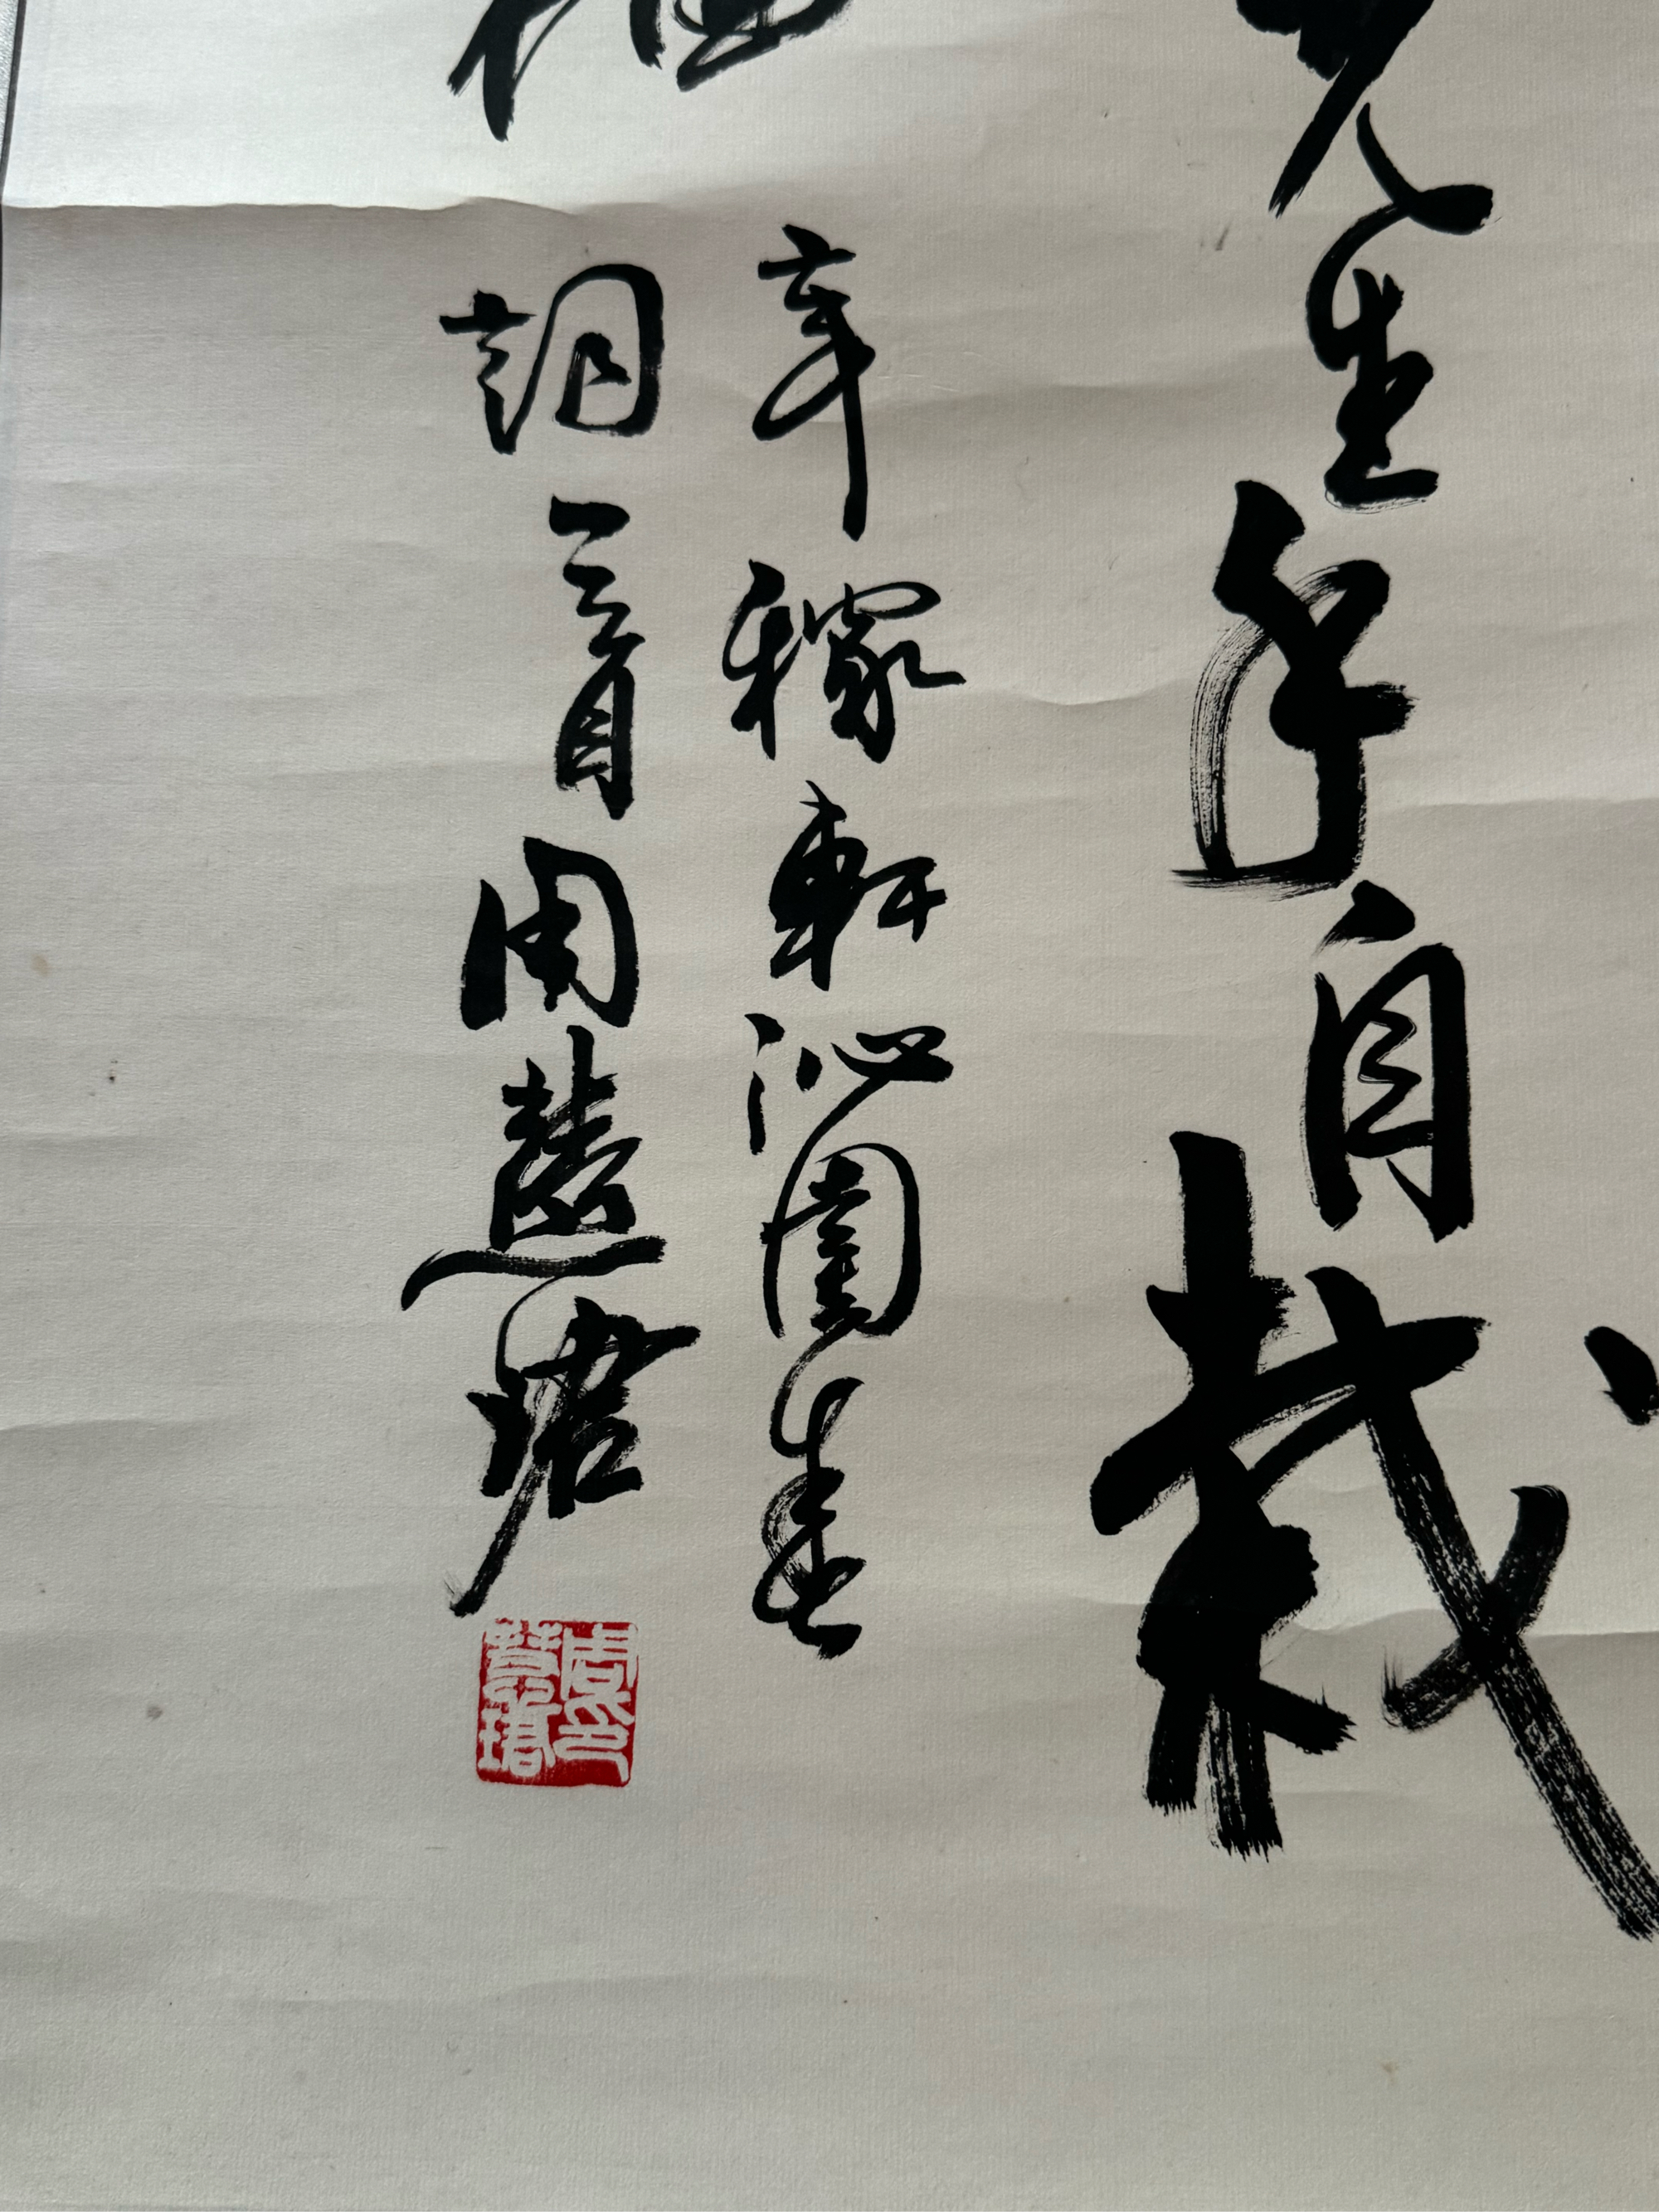 先生手自栽
辛稼軒沁園春
詞一首周慧珺
周印慧珺